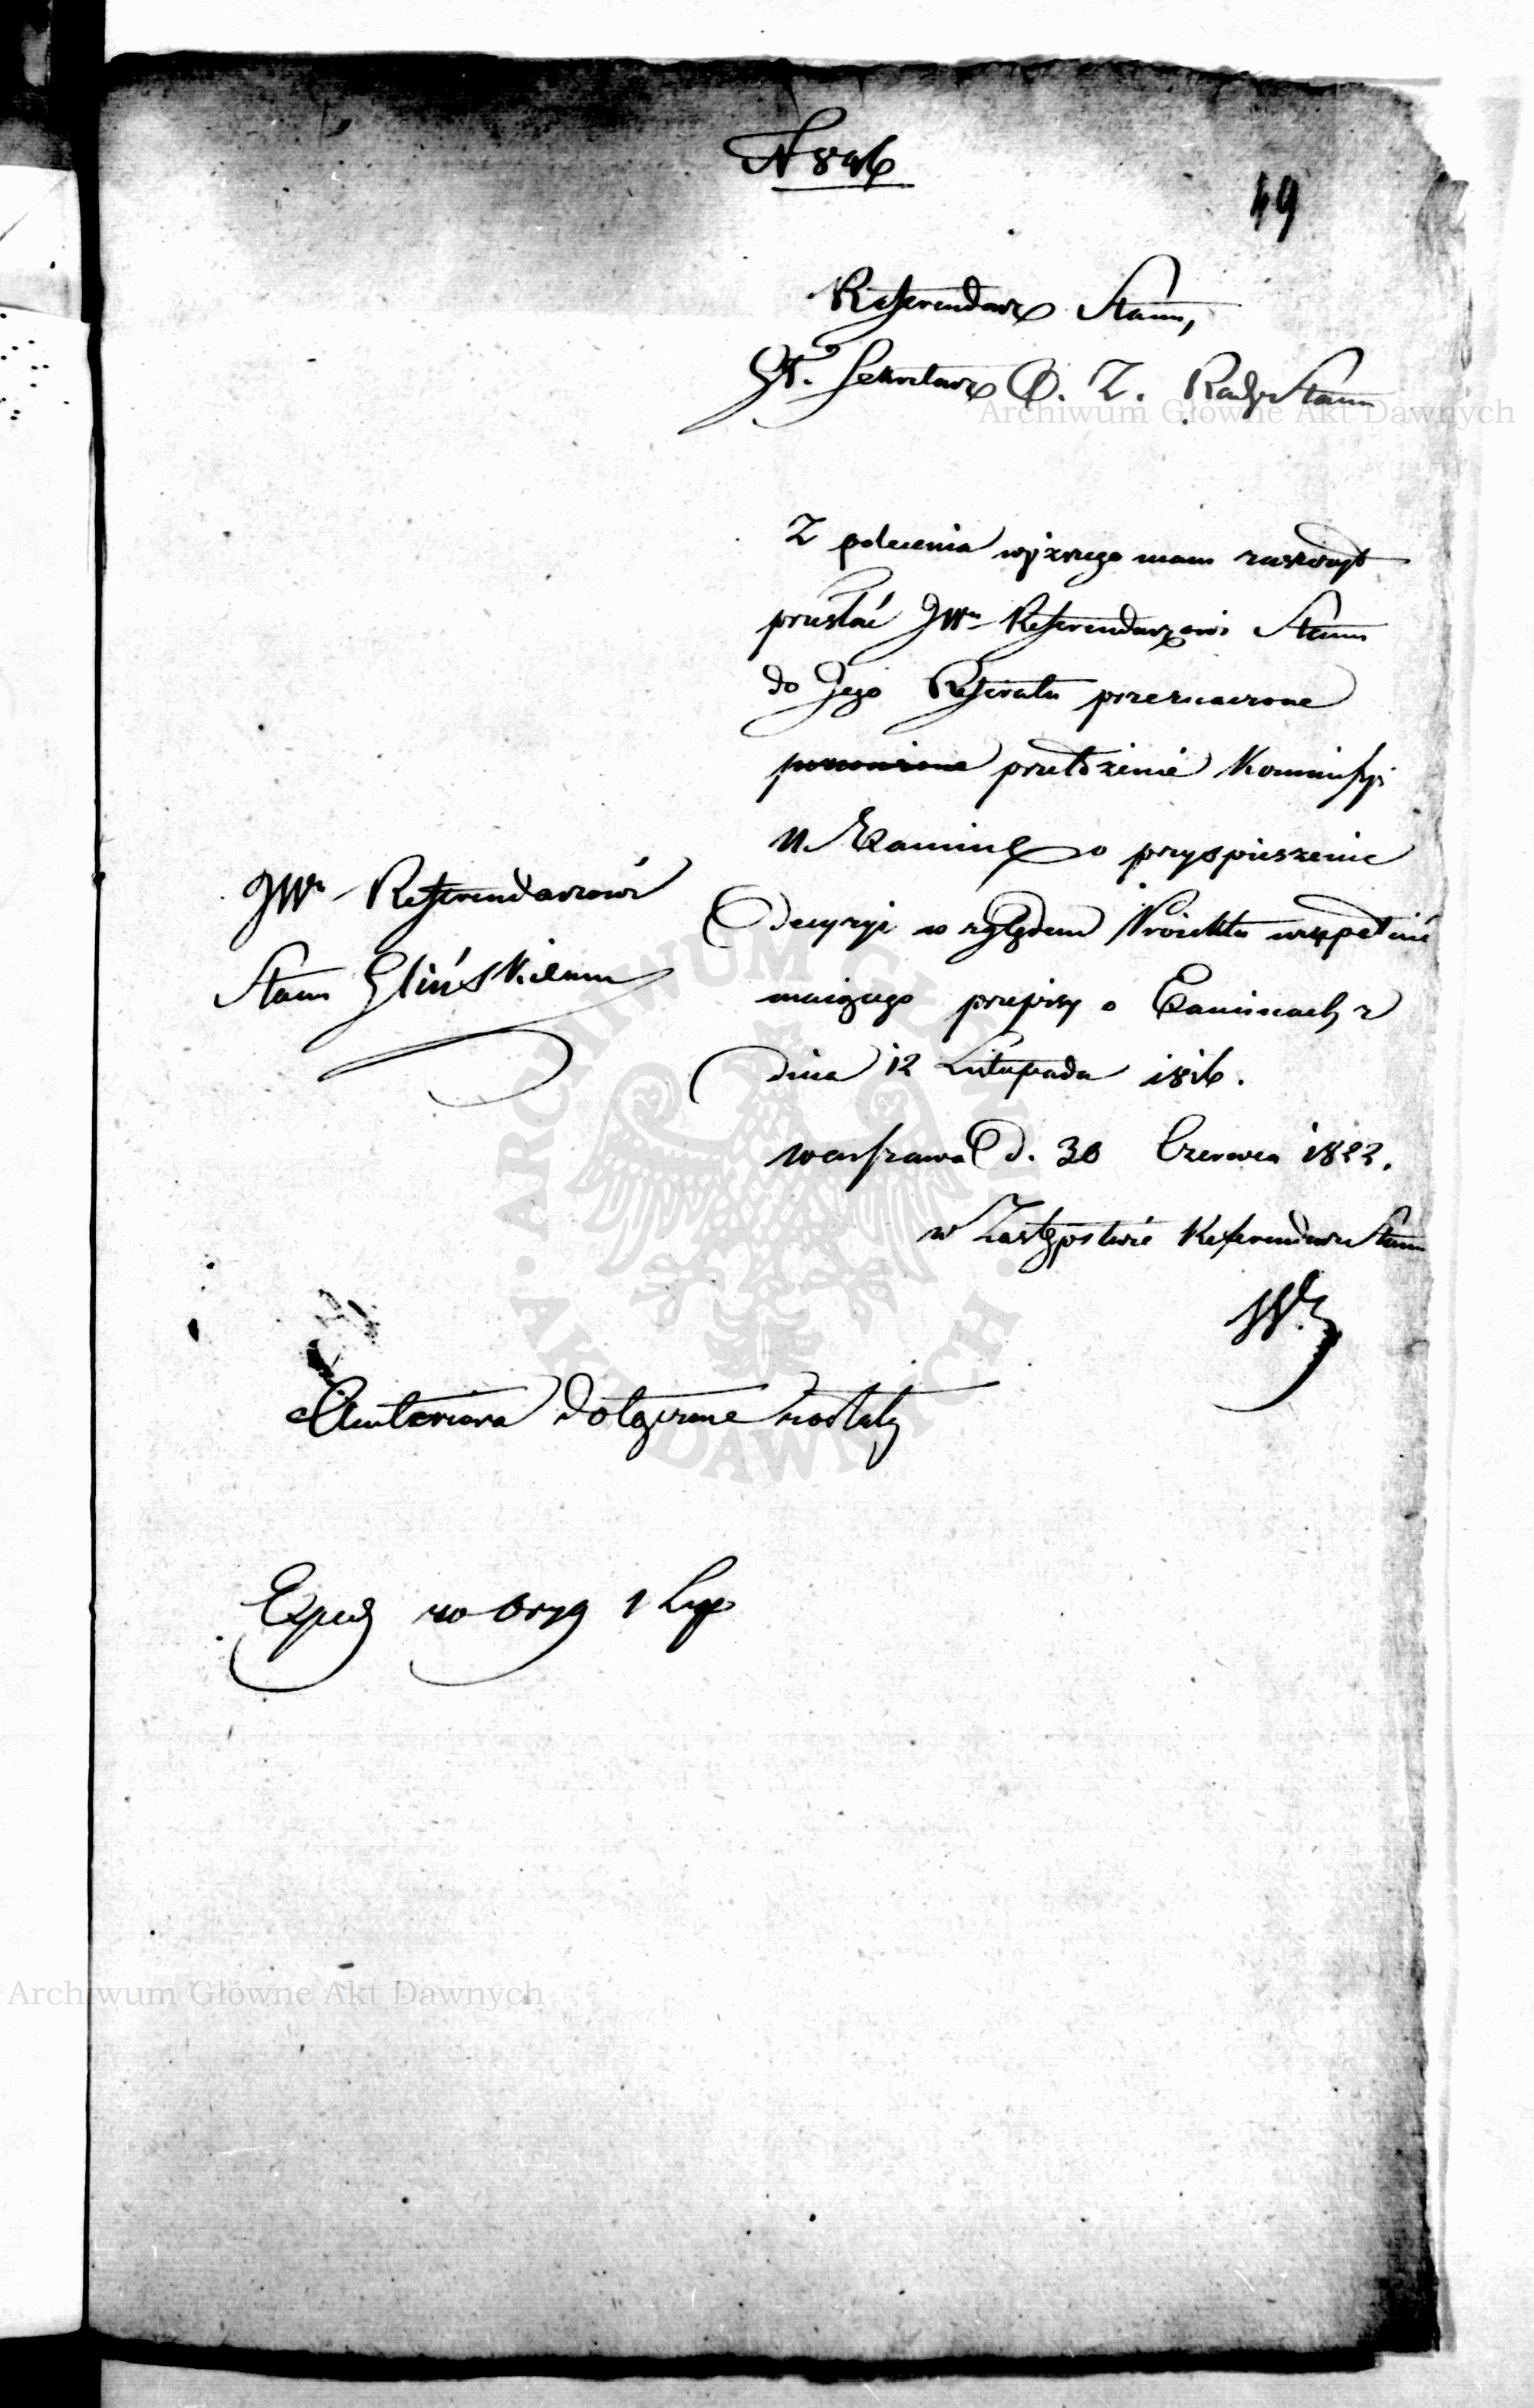 N 846
49
Referendarz Stanu,
Sekretarz O. Z. Rady Stanu
Archiwum Główne Akt Dawnych
Z polecenia wyższego mam zaszczyt
przesłać JWu Referendarzowi Stanu
do Jego Referatu przeznaczone
przełożenie Kommissyi
N. Examin. o przyspieszenie
Decyzyi względem Proiektu uzupełnić
maiącego przepisy o Examinach z
dnia 12 Listopada 1816.
Warszawa d. 30 Czerwca 1823.
w Zastępstwie Referendarz Stanu
JWu Referendarzowi
Stanu Glińskiemu
ARCHIWUM GŁÓWNE AKT DAWNYCH
Anteriora dołączone zostały
Exped w oryg 1 Lip
Archiwum Główne Akt Dawnych